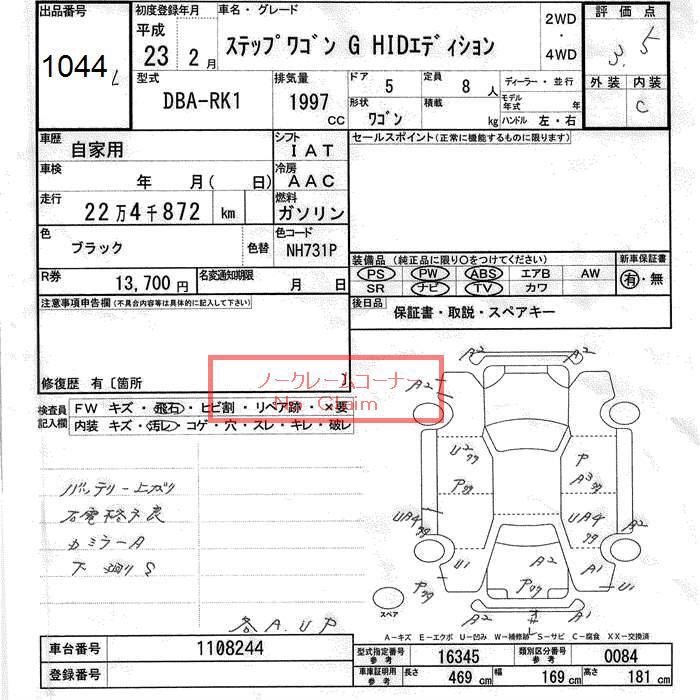 出品番号 初度登録年月 車名・グレード 2WD ・ 4WD 評価点
1044 L 平成 23 2 月 ステップワゴン G HIDエディション 3.5
型式 排気量 ドア 5 定員 8 人 ディーラー・並行 外装 内装
DBA-RK1 1997 CC 形状 ワゴン 積載 kg モデル年式 年 ハンドル 左・右 C
車歴 自家用 シフト IAT セールスポイント(正常に機能するものに限ります)
車検 年 月( 日) 冷房 AAC
走行 22万4千872 km 燃料 ガソリン
色 ブラック 色替 色コード NH731P
装備品(純正品に限り○をつけてください) 新車保証書
R券 13,700円 名変通知期限 月 日 PS PW ABS エアB AW 有・無
SR ナビ TV カワ
注意事項申告欄(不具合内容等は具体的に記入して下さい) 後日品 保証書・取説・スペアキー
修復歴 有〔箇所 〕
ノークレームコーナー
No Claim
検査員記入欄 FW キズ・飛石・ヒビ割・リペア跡・×要
内装 キズ・汚レ・コゲ・穴・スレ・キレ・破レ
A2 A2
A2
U2 77 P
P77 A3 77
UA4 77 UA4 77 A2
U1 A2 A1
P77 P77 U1
A2 A1
バッテリー上がり
カミラーA
下廻りS
各A.U.P
スペア
A-キズ E-エクボ U-凹み W-補修跡 S-サビ C-腐食 XX-交換済
車台番号 1108244 型式指定番号 参考 16345 類別区分番号 参考 0084
登録番号 車庫証明用 参考 長さ 469 cm 幅 169 cm 高さ 181 cm